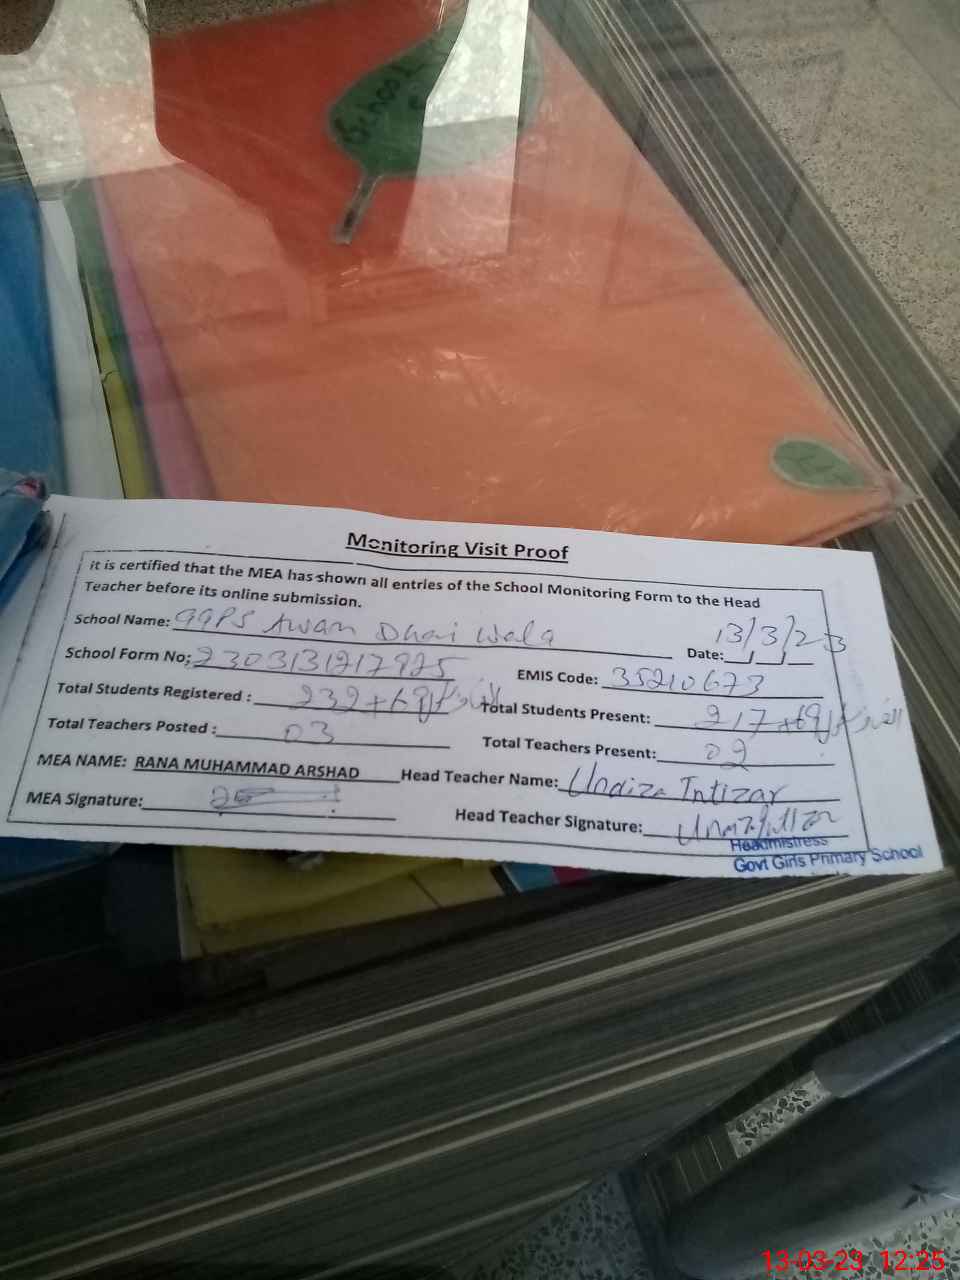 School
Monitoring Visit Proof
it is certified that the MEA has shown all entries of the School Monitoring Form to the Head
Teacher before its online submission.
School Name: GGPS Awan Dhai Wala Date: 13/3/23
School Form No: 2303131217925 EMIS Code: 35210673
Total Students Registered : 232+69 Total Students Present: 217+69
Total Teachers Posted : 03 Total Teachers Present: 02
MEA NAME: RANA MUHAMMAD ARSHAD Head Teacher Name: Unaiza Intizar
MEA Signature: Head Teacher Signature:
Headmistress
Govt Girls Primary School
13-03-23 12:25